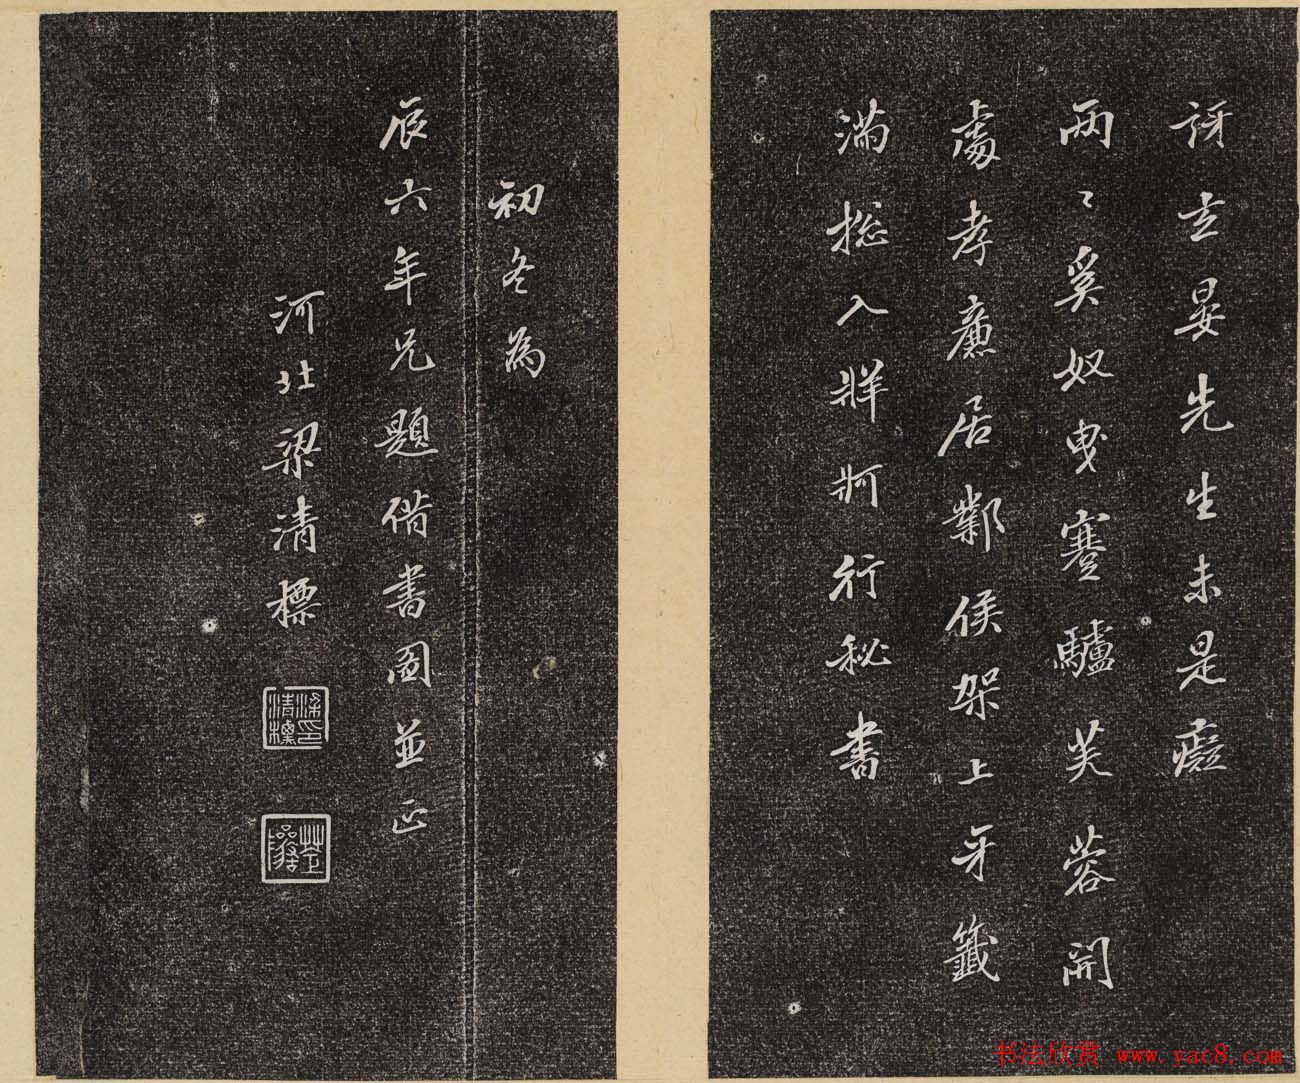 訝玄晏先生未是癡
兩〻奚奴曳蹇驢芙蓉開
處孝廉居鄴侯架上牙籤
滿捴入牂牁行秘書
初冬為
辰六年兄題借書圖並正
河北梁清標
梁清標印
書法欣赏 www.yac8.com